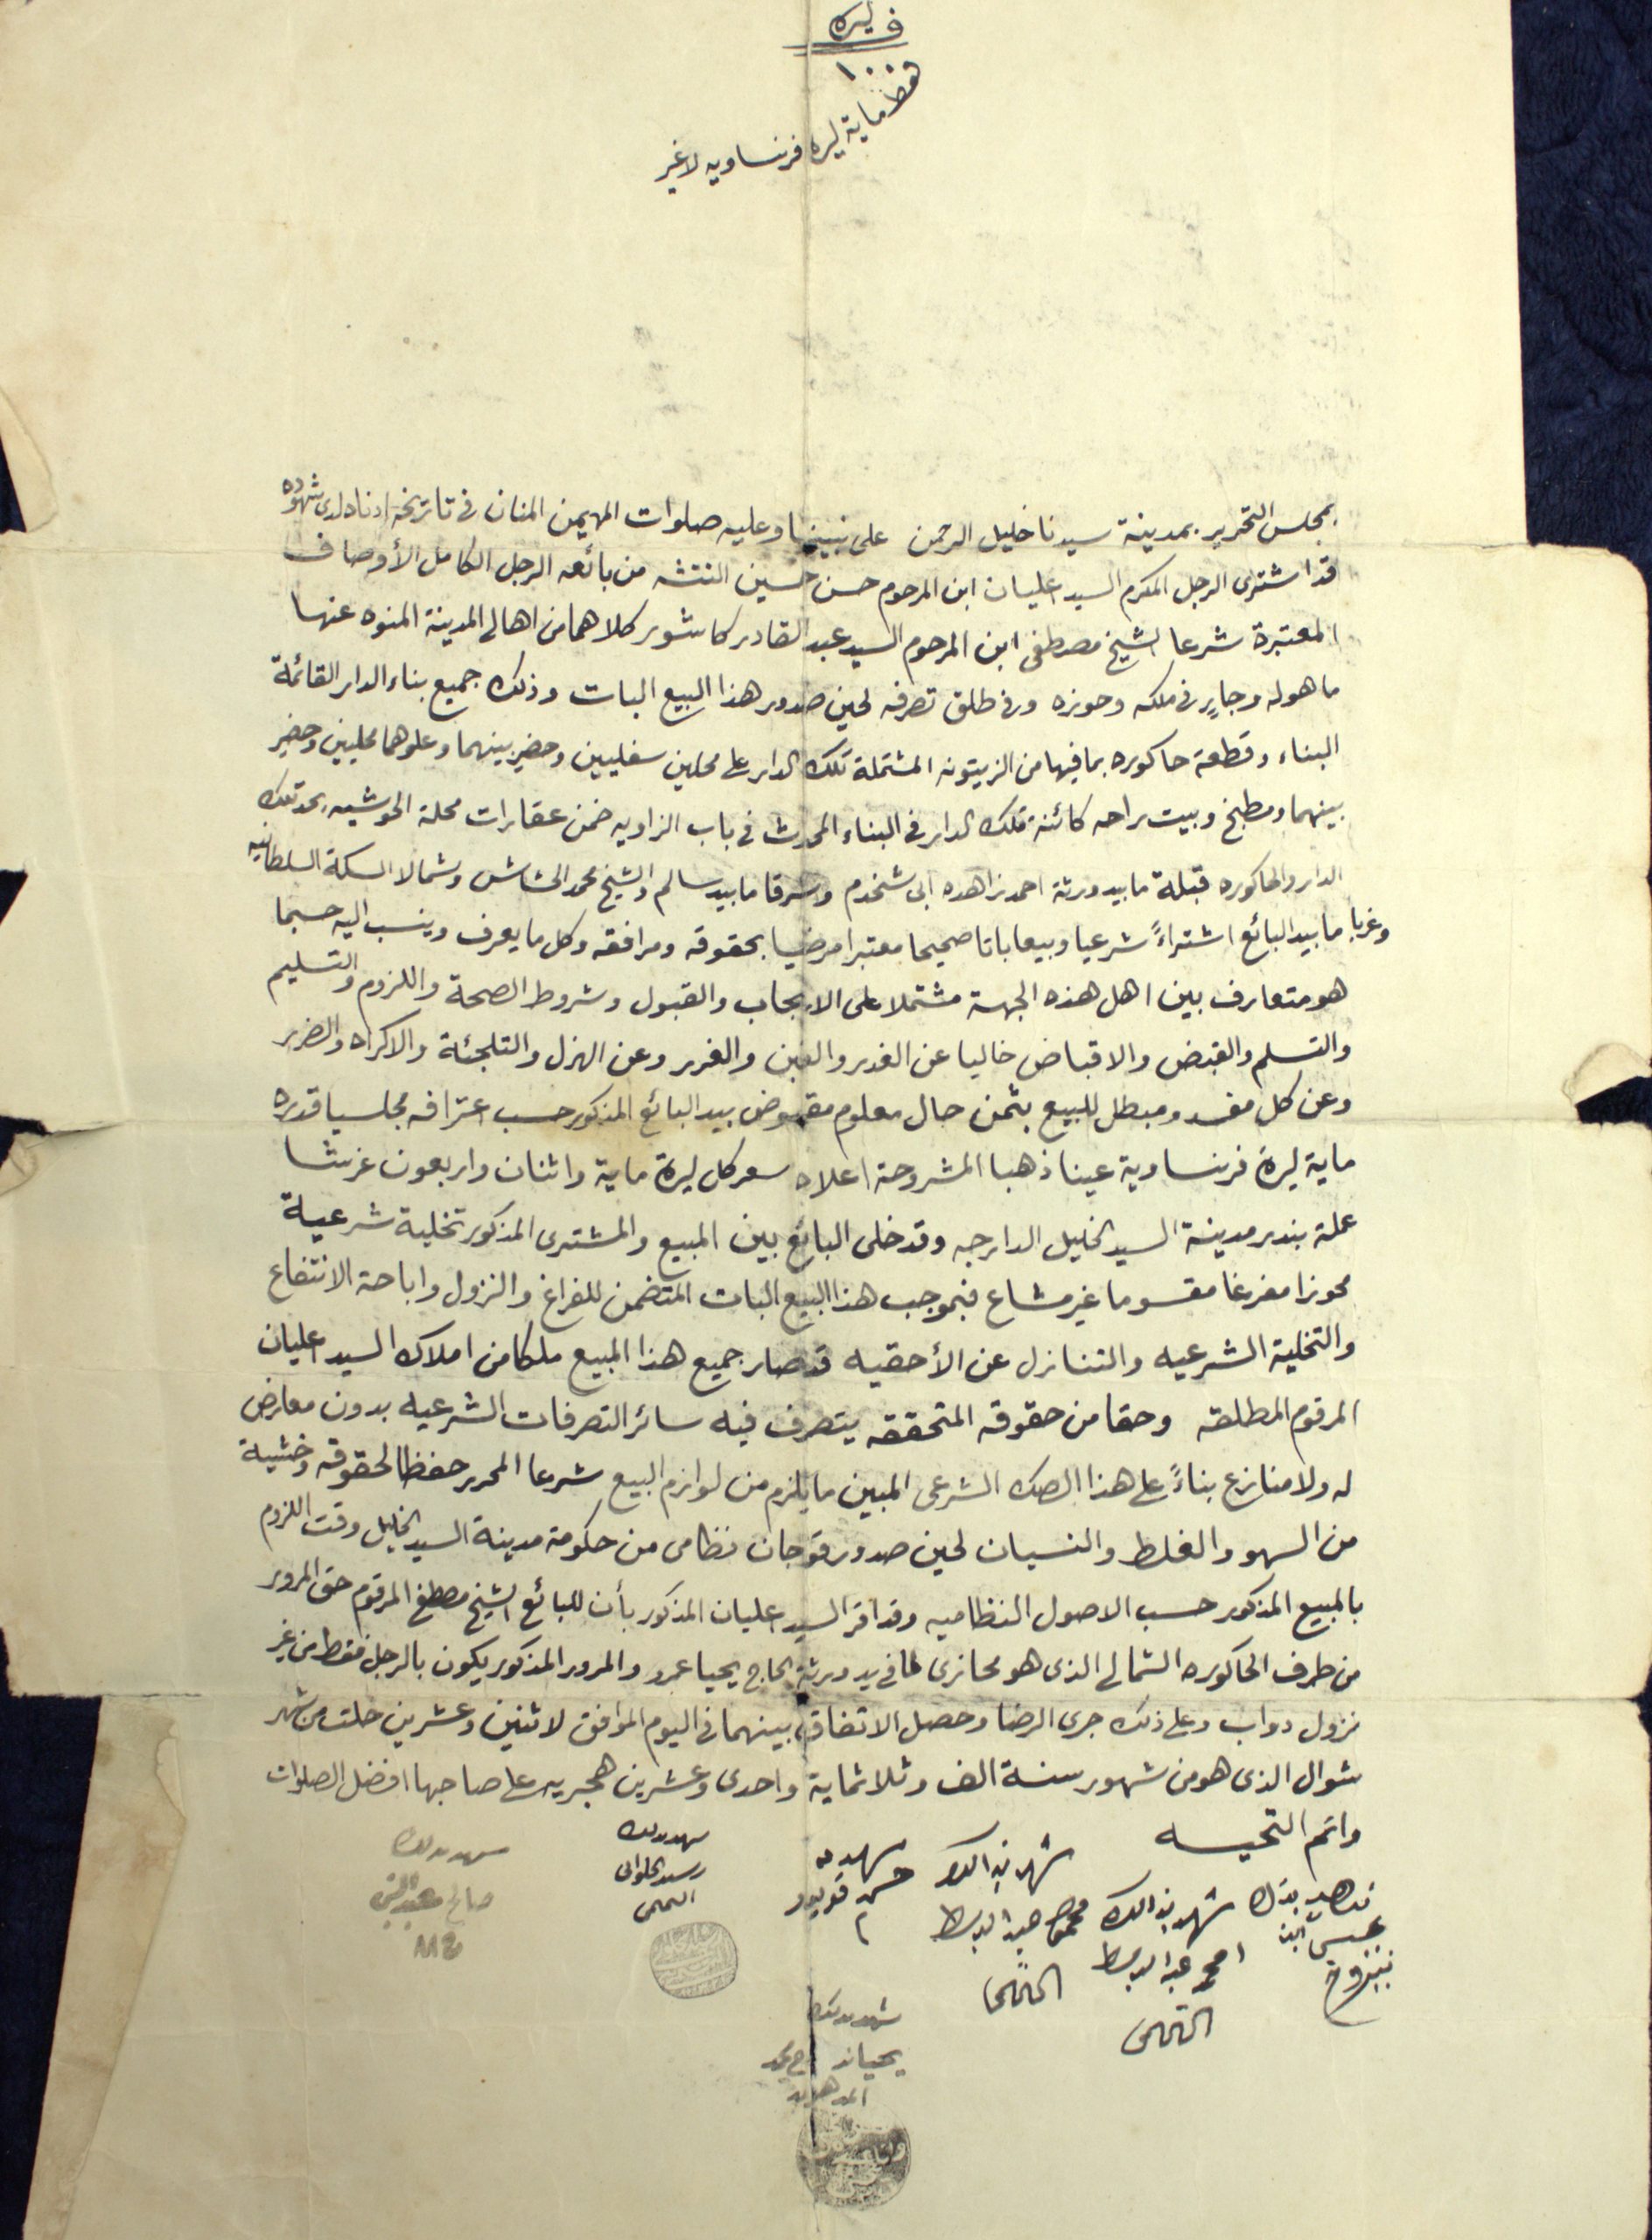 ف ليره
١٠٠
فقط ماية ليره فرنساويه لاغير
بمجلس التحرير بمدينة سيدنا خليل الرحمن على نبينا وعليه صلوات المهيمن المنان في تاريخه ادناه لدى شهوده
قد اشترى الرجل المكرم السيد اعليان ابن المرحوم حسن حسين النتشه من بائعه الرجل الكامل الأوصاف
المعتبرة شرعا الشيخ مصطفى ابن المرحوم السيد عبد القادر كاشور كلاهما من اهالي المدينة المنوه عنها
ما هو له وجارٍ في ملكه وحوزه وفي طلق تصرفه لحين صدور هذا البيع البات وذلك جميع بناء الدار القائمة
البناء وقطعة حاكوره بما فيها من الزيتونه المشتملة تلك الدار على محلين سفليين وحضير بينهما وعلوهما محليين وحضير
بينهما ومطبخ وبيت راحه كائنة تلك الدار في البناء المحدث في باب الزاويه ضمن عقارات محلة الحوشيه بحد تلك
الدار والحاكوره قبلة ما بيد ورثة احمد زاهده ابى شخدم وشرقا ما بيد سالم والشيخ محمد الخشاش وشمالا السكة السلطانيه
وغربا ما بيد البائع اشتراءً شرعيا وبيعا باتا صحيحا معتبرا مرضيا بحقوقه ومرافقه وكل ما يعرف وينسب اليه حسبما
هو متعارف بين اهل هذه الجهة مشتملا على الايجاب والقبول وشروط الصحة واللزوم والتسليم
والتسلم والقبض والاقباض خاليا عن الغدر والغبن والغرر وعن الهزل والتلجئة والاكراه والضرر
وعن كل مفسد ومبطل للبيع بثمن حال معلوم مقبوض بيد البائع المذكور حسب اعترافه مجلسيا قدره
ماية ليرة فرنساوية عينا ذهبا المشروحة اعلاه سعر كل ليرة ماية واثنان واربعون غرشا
عملة بندر مدينة السيد الخليل الدارجه وقد خلى البائع بين المبيع والمشترى المذكور تخلية شرعية
محوزا مفرغا مقسوما غير مشاع فبموجب هذا البيع البات المتضمن للفراغ والنزول واباحة الانتفاع
والتخلية الشرعيه والتنازل عن الأحقيه قد صار جميع هذا المبيع ملكا من املاك السيد اعليان
المرقوم المطلقه وحقا من حقوقه المتحققه يتصرف فيه سائر التصرفات الشرعيه بدون معارض
له ولا منازع بناءً على هذا الصك الشرعى المبين ما يلزم من لوازم البيع شرعا المحرر حفظا لحقوقه وخشية
من السهو والغلط والنسيان لحين صدور قوجان نظامى من حكومة مدينة السيد الخليل وقت اللزوم
بالمبيع المذكور حسب الاصول النظاميه وقد اقر السيد اعليان المذكور بأن للبائع الشيخ مصطفى المرقوم حق المرور
من طرف الحاكوره الشمالي الذى هو محازى لما في يد ورثة الحاج يحيا عمرو والمرور المذكور يكون بالرجل فقط من غير
نزول دواب وعلى ذلك جرى الرضا وحصل الاتفاق بينهما في اليوم الموافق لاثنين وعشرين خلت من شهر
شوال الذى هو من شهور سنة الف وثلاثماية واحدى وعشرين هجريه على صاحبها افضل الصلوات
واتم التحيه
شهد بذلك شهد بذلك شهد بذلك شهد بذلك
عيسى محمد عبد الباسط محمود عبد الباسط
شهد بذلك
شهد بذلك
صالح
شهد بذلك
يحيا